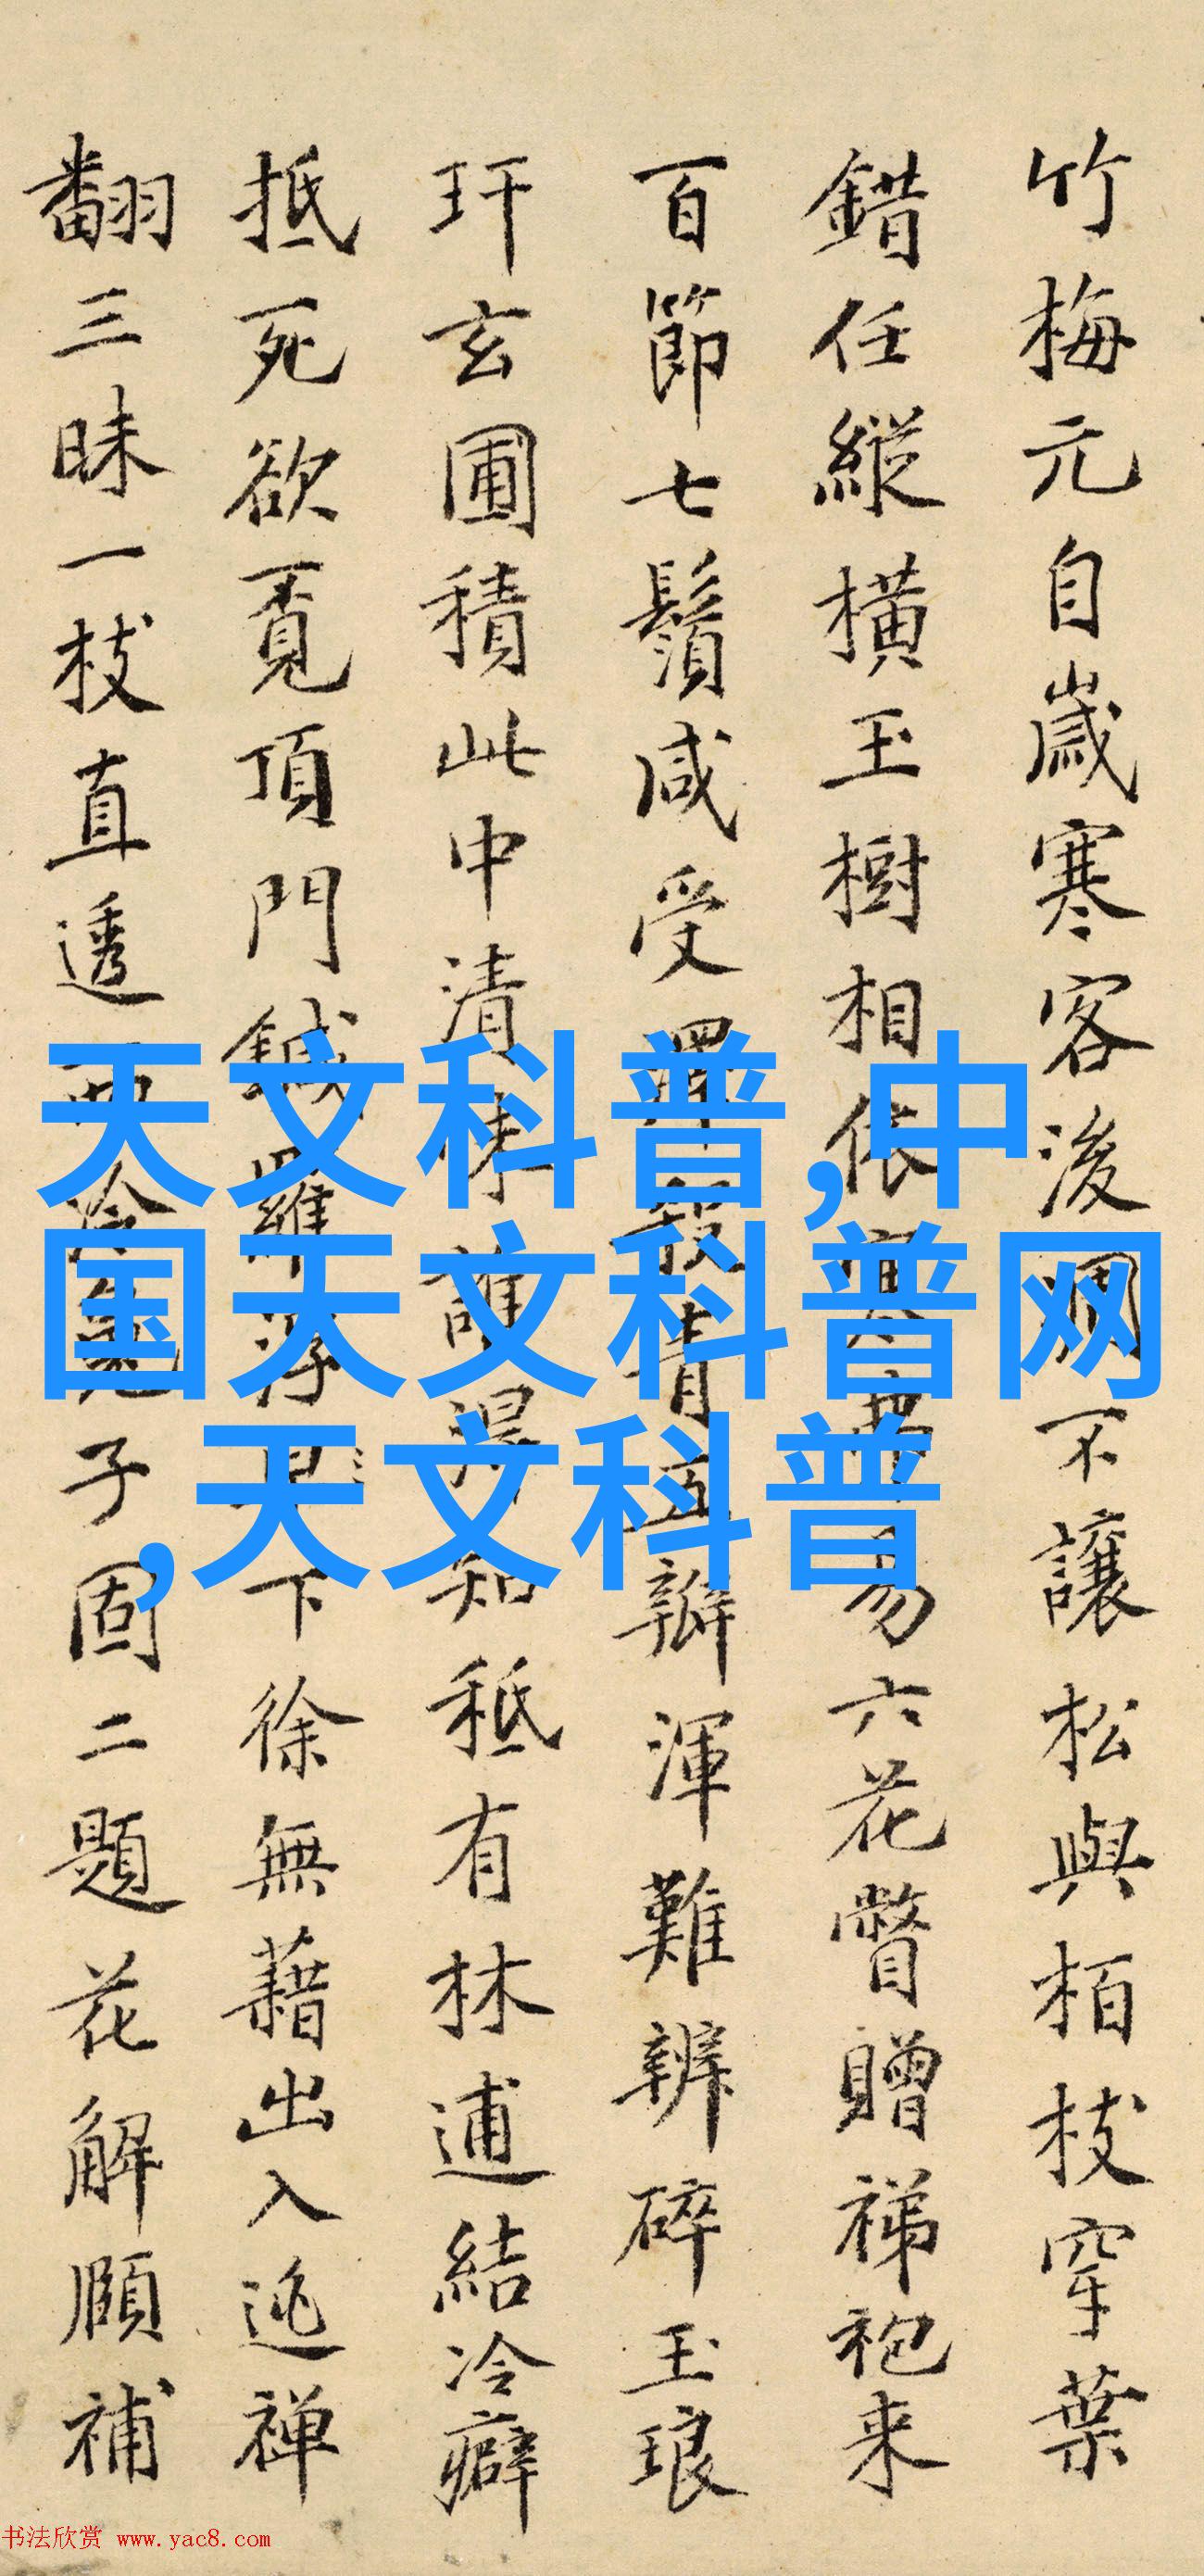 竹梅元自歲寒客後凋不讓松與栢枝穿葉
錯任縱橫玉樹相依六花瞥贈袍来
百節七鬚咸受青五瓣渾難辨碎玉琅
玕玄圃積此中清味誰知秪有林逋結冷癖
抵死欲覔頂門鍼羅浮下徐無藉出入逃禅
翻三昧一枝直透子固二題花解頤補
天文科普,中
国天文科普网
,天文科普
书法欣赏 www.yac8.com